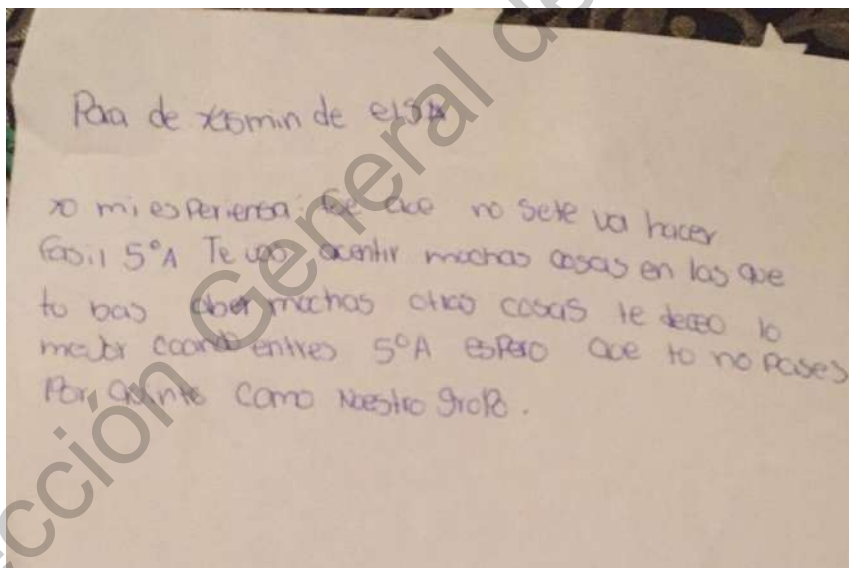 Para de xasmin de elsa
yo mi esperiensa: fue que no sete va hacer
fasil 5°A Te vas asentir muchas cosas en las que
tu bas aber muchas otras cosas te deceo lo
mejor cuando entres 5°A espero que tu no pases
Por quinto como nuestro grupo.
cción General de